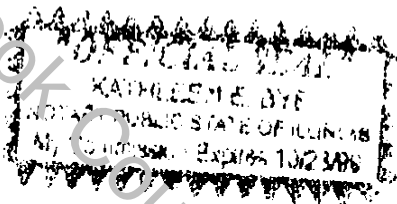 OFFICIAL SEAL
KATHLEEN E. DYE
NOTARY PUBLIC STATE OF ILLINOIS
My Commission Expires
ook Co